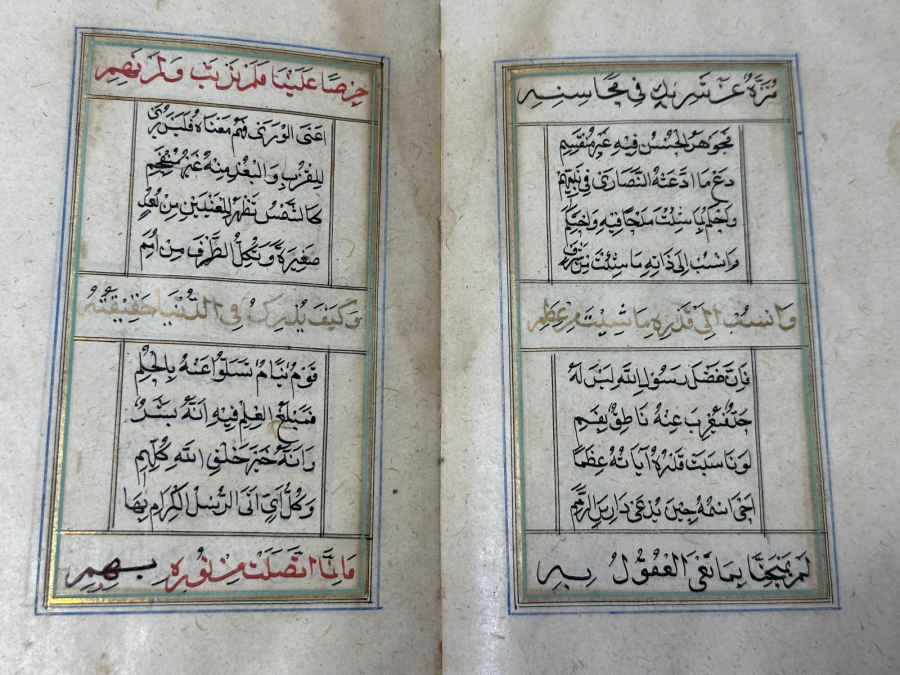 مُنَزَّهٌ عَنْ شَرِيكٍ فِي مَحَاسِنِهِ
فَجَوْهَرُ الْحُسْنِ فِيهِ غَيْرُ مُنْقَسِمِ
دَعْ مَا ادَّعَتْهُ النَّصَارَى فِي نَبِيِّهِمِ
وَاحْكُمْ بِمَا شِئْتَ مَدْحًا فِيهِ وَاحْتَكِمِ
وَانْسُبْ اِلَى ذَاتِهِ مَا شِئْتَ مِنْ شَرَفٍ
وَانْسُبْ اِلَى قَدْرِهِ مَا شِئْتَ مِنْ عِظَمِ
فَاِنَّ فَضْلَ رَسُولِ اللّٰهِ لَيْسَ لَهُ
حَدٌّ فَيُعْرِبَ عَنْهُ نَاطِقٌ بِفَمِ
لَوْ نَاسَبَتْ قَدْرَهُ آيَاتُهُ عِظَمًا
اَحْيَى اسْمُهُ حِينَ يُدْعَى دَارِسَ الرِّمَمِ
لَمْ يَمْتَحِنَّا بِمَا تَعْيَى الْعُقُولُ بِهِ
حِرْصًا عَلَيْنَا فَلَمْ نَرْتَبْ وَلَمْ نَهِمِ
اَعْيَى الْوَرَى فَهْمُ مَعْنَاهُ فَلَيْسَ يُرَى
لِلْقُرْبِ وَالْبُعْدِ مِنْهُ غَيْرُ مُنْفَحِمِ
كَالشَّمْسِ تَظْهَرُ لِلْعَيْنَيْنِ مِنْ بُعُدٍ
صَغِيرَةً وَتُكِلُّ الطَّرْفَ مِنْ اَمَمِ
وَكَيْفَ يُدْرِكُ فِي الدُّنْيَا حَقِيقَتَهُ
قَوْمٌ نِيَامٌ تَسَلَّوْا عَنْهُ بِالْحُلُمِ
فَمَبْلَغُ الْعِلْمِ فِيهِ اَنَّهُ بَشَرٌ
وَاَنَّهُ خَيْرُ خَلْقِ اللّٰهِ كُلِّهِمِ
وَكُلُّ آيٍ اَتَى الرُّسْلُ الْكِرَامُ بِهَا
فَاِنَّمَا اتَّصَلَتْ مِنْ نُورِهِ بِهِمِ